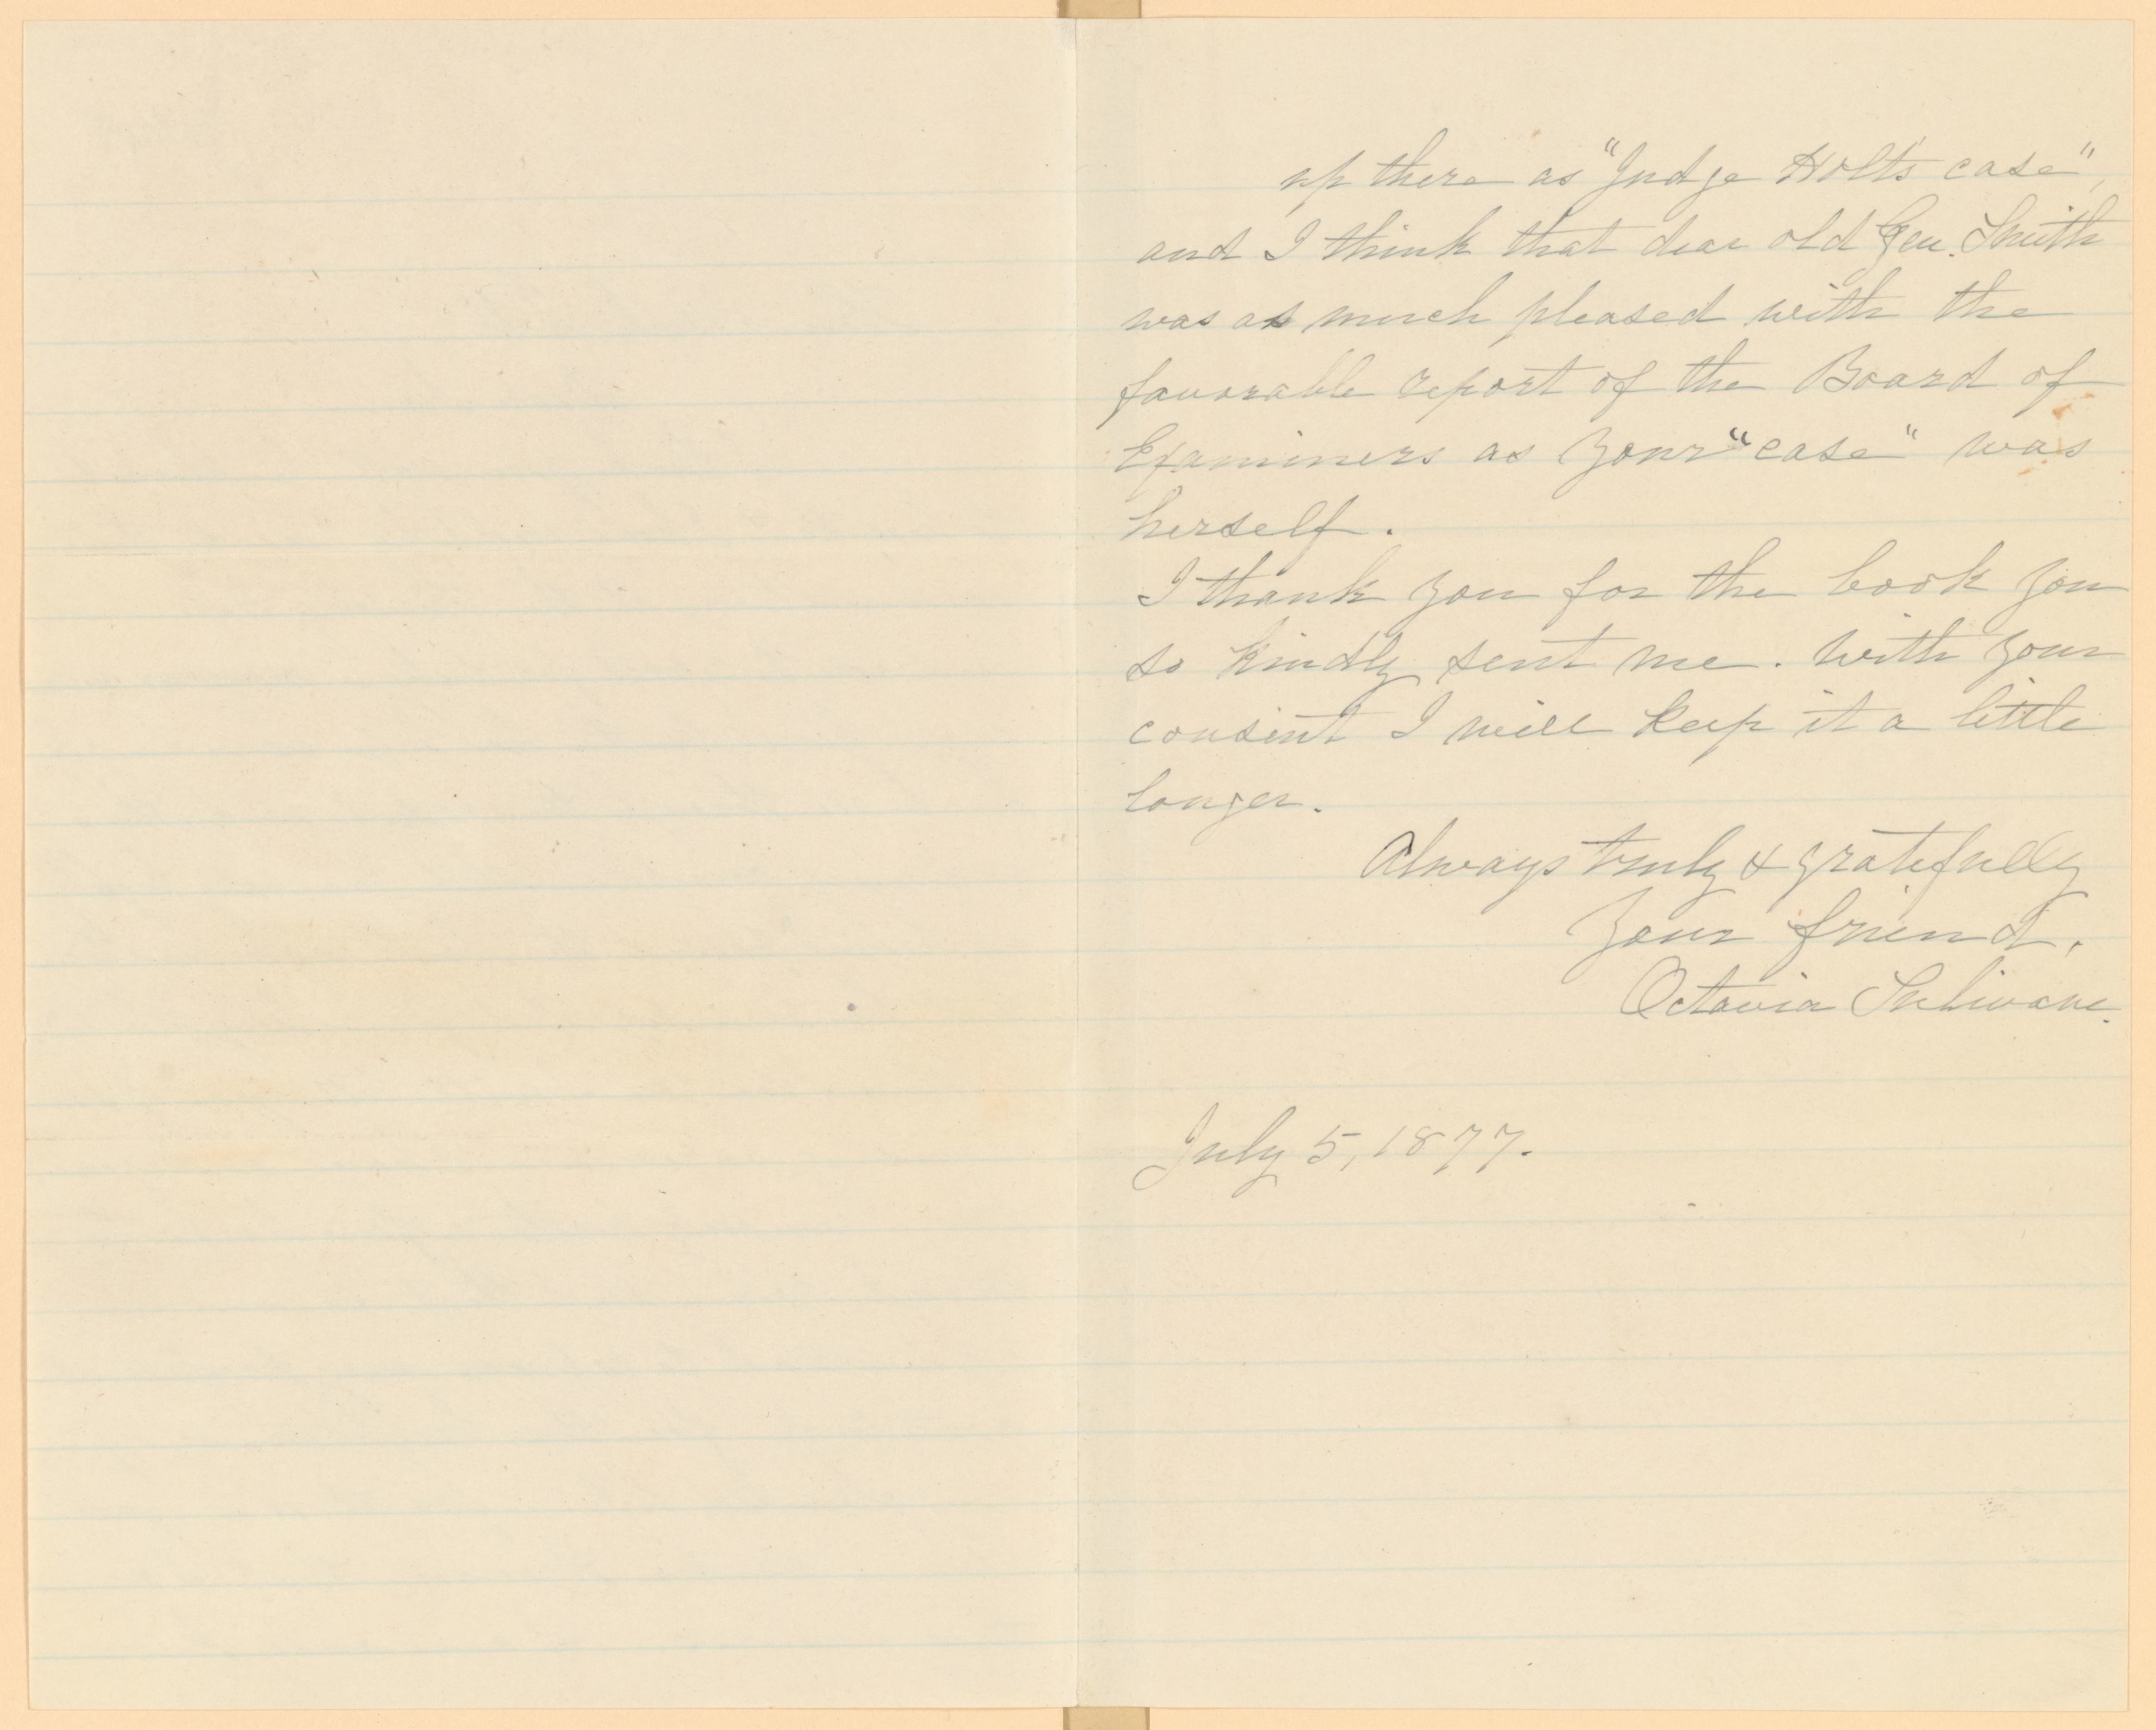 up there as "Judge Holt's case",
and I think that dear old Gen. Smith
was as much pleased with the
favorable report of the Board of
Examiners as your "case" was
herself.
I thank you for the book you
so kindly sent me. With your
consent I will keep it a little
longer.
Always truly & gratefully
Your friend,
Octavia Sulivane.
July 5, 1877.